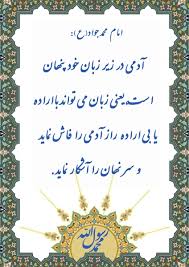 امام محمد جواد (ع):
آدمی در زیر زبان خود پنهان
است یعنی زبان می تواند با اراده
یا بی اراده راز آدمی را فاش نماید
و سر نهان را آشکار نماید.
محمد رسول الله